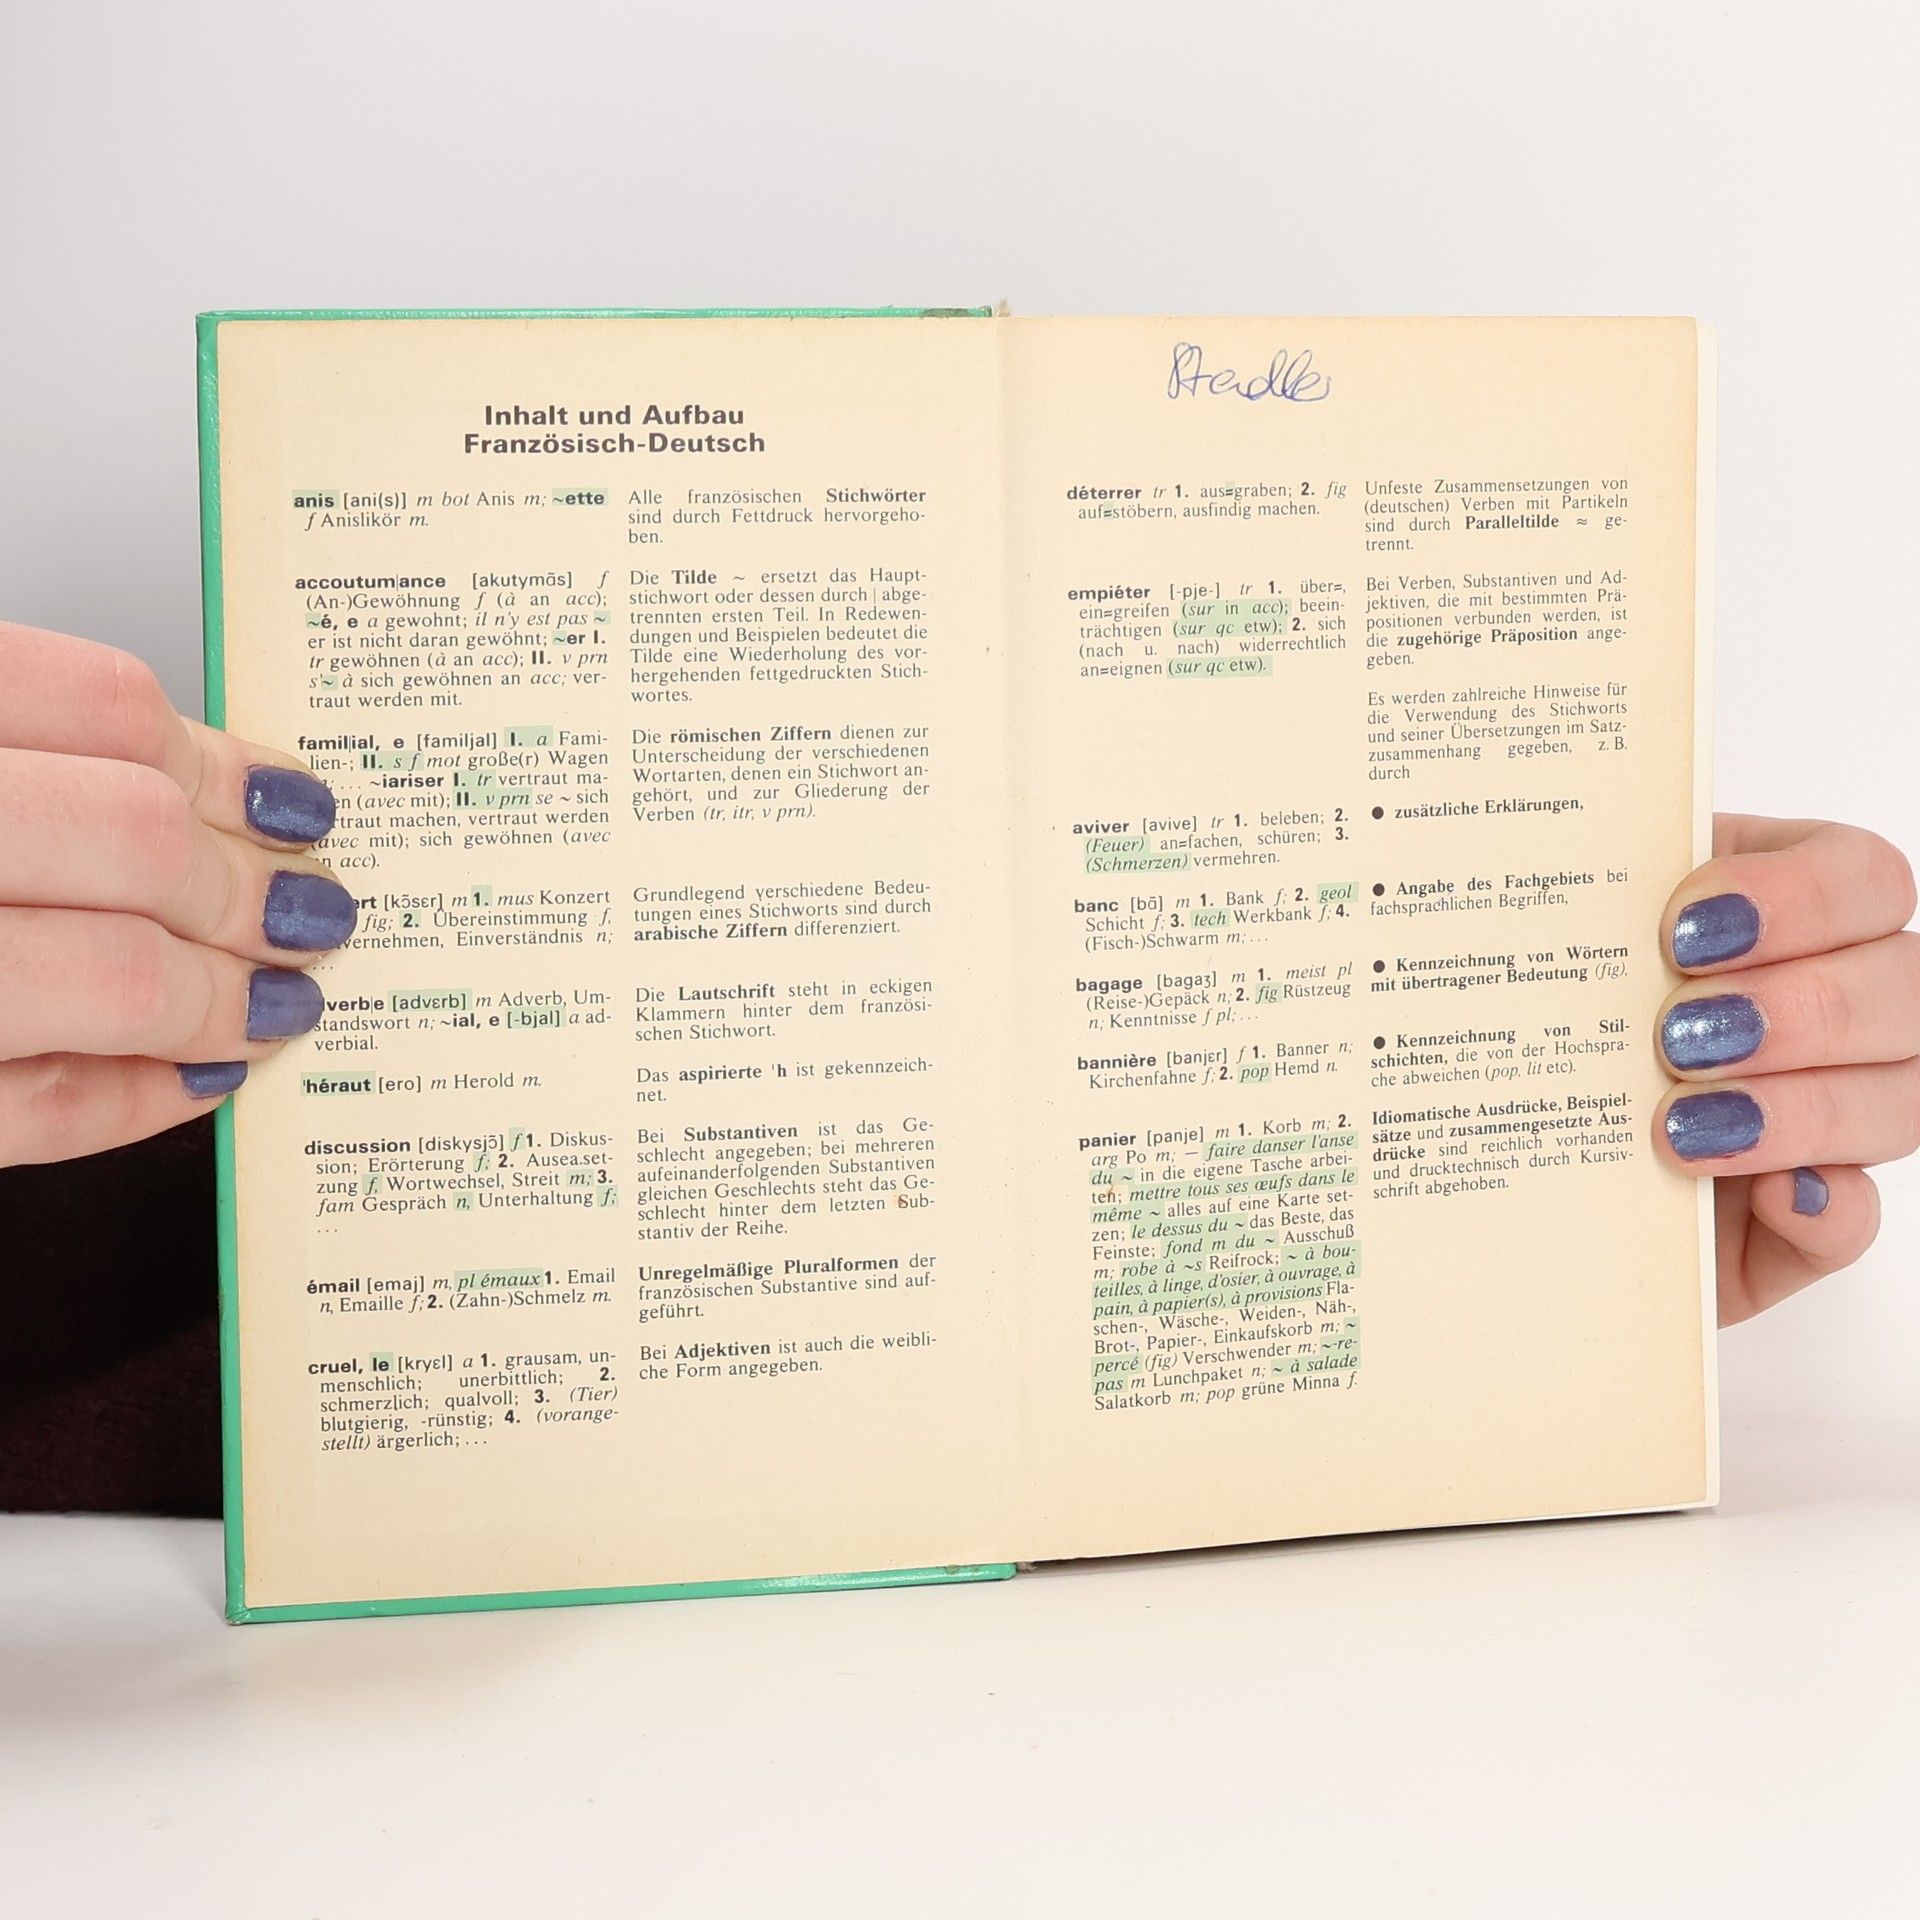 Inhalt und Aufbau
Französisch-Deutsch
anis [ani(s)] m bot Anis m; ~ette
f Anislikör m.
Alle französischen Stichwörter
sind durch Fettdruck hervorgeho-
ben.
accoutum|ance [akutymãs] f
(An-)Gewöhnung f (à an acc);
~é, e a gewohnt; il n'y est pas ~
er ist nicht daran gewöhnt; ~er I.
tr gewöhnen (à an acc); II. v prn
s'~ à sich gewöhnen an acc; ver-
traut werden mit.
Die Tilde ~ ersetzt das Haupt-
stichwort oder dessen durch | abge-
trennten ersten Teil. In Redewen-
dungen und Beispielen bedeutet die
Tilde eine Wiederholung des vor-
hergehenden fettgedruckten Stich-
wortes.
famil|ial, e [familjal] I. a Fami-
lien-; II. s f mot große(r) Wagen
; ... ~iariser I. tr vertraut ma-
en (avec mit); II. v prn se ~ sich
rtraut machen, vertraut werden
(avec mit); sich gewöhnen (avec
n acc).
Die römischen Ziffern dienen zur
Unterscheidung der verschiedenen
Wortarten, denen ein Stichwort an-
gehört, und zur Gliederung der
Verben (tr, itr, v prn).
ert [kõsɛr] m 1. mus Konzert
fig; 2. Übereinstimmung f,
vernehmen, Einverständnis n;
...
Grundlegend verschiedene Bedeu-
tungen eines Stichworts sind durch
arabische Ziffern differenziert.
verb|e [advɛrb] m Adverb, Um-
standswort n; ~ial, e [-bjal] a ad-
verbial.
Die Lautschrift steht in eckigen
Klammern hinter dem französi-
schen Stichwort.
'héraut [ero] m Herold m.
Das aspirierte 'h ist gekennzeich-
net.
discussion [diskysjõ] f 1. Diskus-
sion; Erörterung f; 2. Ausea.set-
zung f, Wortwechsel, Streit m; 3.
fam Gespräch n, Unterhaltung f;
...
Bei Substantiven ist das Ge-
schlecht angegeben; bei mehreren
aufeinanderfolgenden Substantiven
gleichen Geschlechts steht das Ge-
schlecht hinter dem letzten Sub-
stantiv der Reihe.
émail [emaj] m, pl émaux 1. Email
n, Emaille f; 2. (Zahn-)Schmelz m.
Unregelmäßige Pluralformen der
französischen Substantive sind auf-
geführt.
cruel, le [kryɛl] a 1. grausam, un-
menschlich; unerbittlich; 2.
schmerzlich; qualvoll; 3. (Tier)
blutgierig, -rünstig; 4. (vorange-
stellt) ärgerlich; ...
Bei Adjektiven ist auch die weibli-
che Form angegeben.
Stadler
déterrer tr 1. aus≈graben; 2. fig
auf≈stöbern, ausfindig machen.
Unfeste Zusammensetzungen von
(deutschen) Verben mit Partikeln
sind durch Paralleltilde ≈ ge-
trennt.
empiéter [-pje-] tr 1. über≈,
ein≈greifen (sur in acc); beein-
trächtigen (sur qc etw); 2. sich
(nach u. nach) widerrechtlich
an≈eignen (sur qc etw).
Bei Verben, Substantiven und Ad-
jektiven, die mit bestimmten Prä-
positionen verbunden werden, ist
die zugehörige Präposition ange-
geben.
Es werden zahlreiche Hinweise für
die Verwendung des Stichworts
und seiner Übersetzungen im Satz-
zusammenhang gegeben, z. B.
durch
aviver [avive] tr 1. beleben; 2.
(Feuer) an≈fachen, schüren; 3.
(Schmerzen) vermehren.
● zusätzliche Erklärungen,
banc [bã] m 1. Bank f; 2. geol
Schicht f; 3. tech Werkbank f; 4.
(Fisch-)Schwarm m; ...
● Angabe des Fachgebiets bei
fachsprachlichen Begriffen,
bagage [bagaʒ] m 1. meist pl
(Reise-)Gepäck n; 2. fig Rüstzeug
n; Kenntnisse f pl; ...
● Kennzeichnung von Wörtern
mit übertragener Bedeutung (fig),
bannière [banjɛr] f 1. Banner n;
Kirchenfahne f; 2. pop Hemd n.
● Kennzeichnung von Stil-
schichten, die von der Hochspra-
che abweichen (pop, lit etc).
panier [panje] m 1. Korb m; 2.
arg Po m; — faire danser l'anse
du ~ in die eigene Tasche arbei-
ten; mettre tous ses œufs dans le
même ~ alles auf eine Karte set-
zen; le dessus du ~ das Beste, das
Feinste; fond m du ~ Ausschuß
m; robe à ~s Reifrock; ~ à bou-
teilles, à linge, d'osier, à ouvrage, à
pain, à papier(s), à provisions Fla-
schen-, Wäsche-, Weiden-, Näh-,
Brot-, Papier-, Einkaufskorb m; ~
percé (fig) Verschwender m; ~-re-
pas m Lunchpaket n; ~ à salade
Salatkorb m; pop grüne Minna f.
Idiomatische Ausdrücke, Beispiel-
sätze und zusammengesetzte Aus-
drücke sind reichlich vorhanden
und drucktechnisch durch Kursiv-
schrift abgehoben.